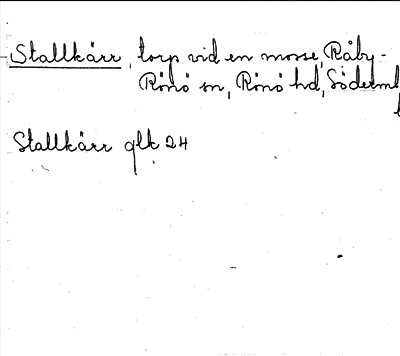 Stallkärr, torp vid en mosse, Råby-
Rönö sn, Rönö hd, Söderml
Stallkärr glk 24